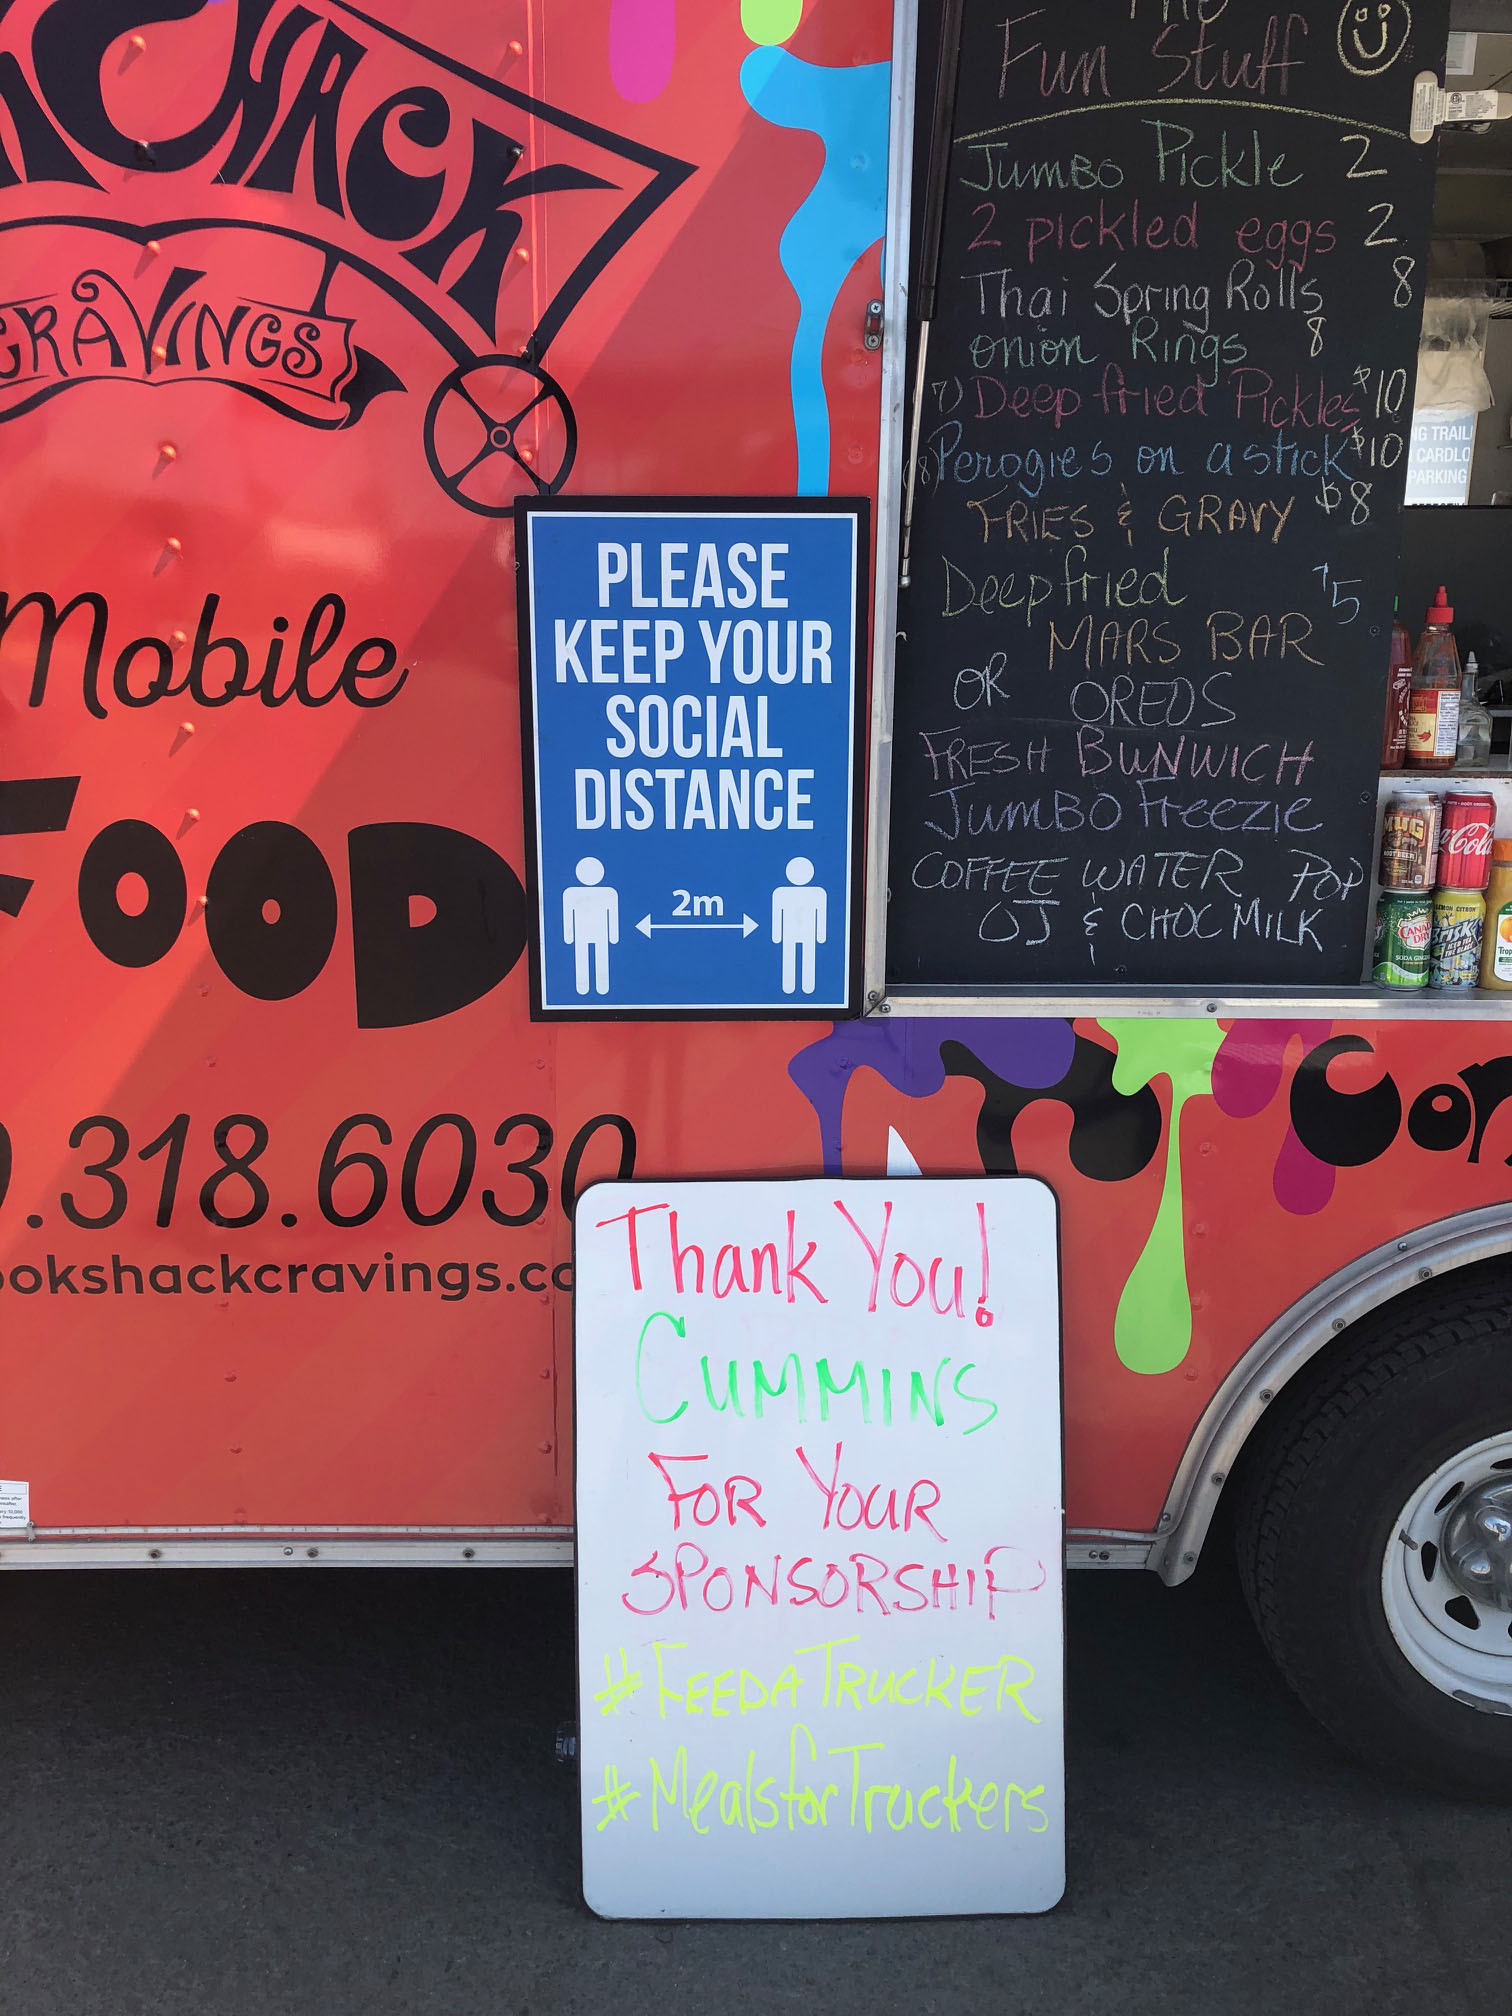 SHACK
CRAVINGS
Mobile
FOOD
.318.6030
okshackcravings.co
PLEASE
KEEP YOUR
SOCIAL
DISTANCE
2m
The
Fun Stuff
Jumbo Pickle 2
2 pickled eggs 2
Thai Spring Rolls 8
onion Rings 8
7) Deep fried Pickles $10
8) Perogies on a stick $10
FRIES & GRAVY $8
Deep fried $5
MARS BAR
OR OREOS
FRESH BUNWICH
JUMBO Freezie
COFFEE WATER POP
OJ & CHOC MILK
NG TRAIL
CARDLO
PARKING
MUG
ROOT BEER
Coca-Cola
CANADA
DRY
BRISK
Trop
Con
Thank You!
CUMMINS
FOR YOUR
SPONSORSHIP
#FEEDATRUCKER
#MealsforTruckers